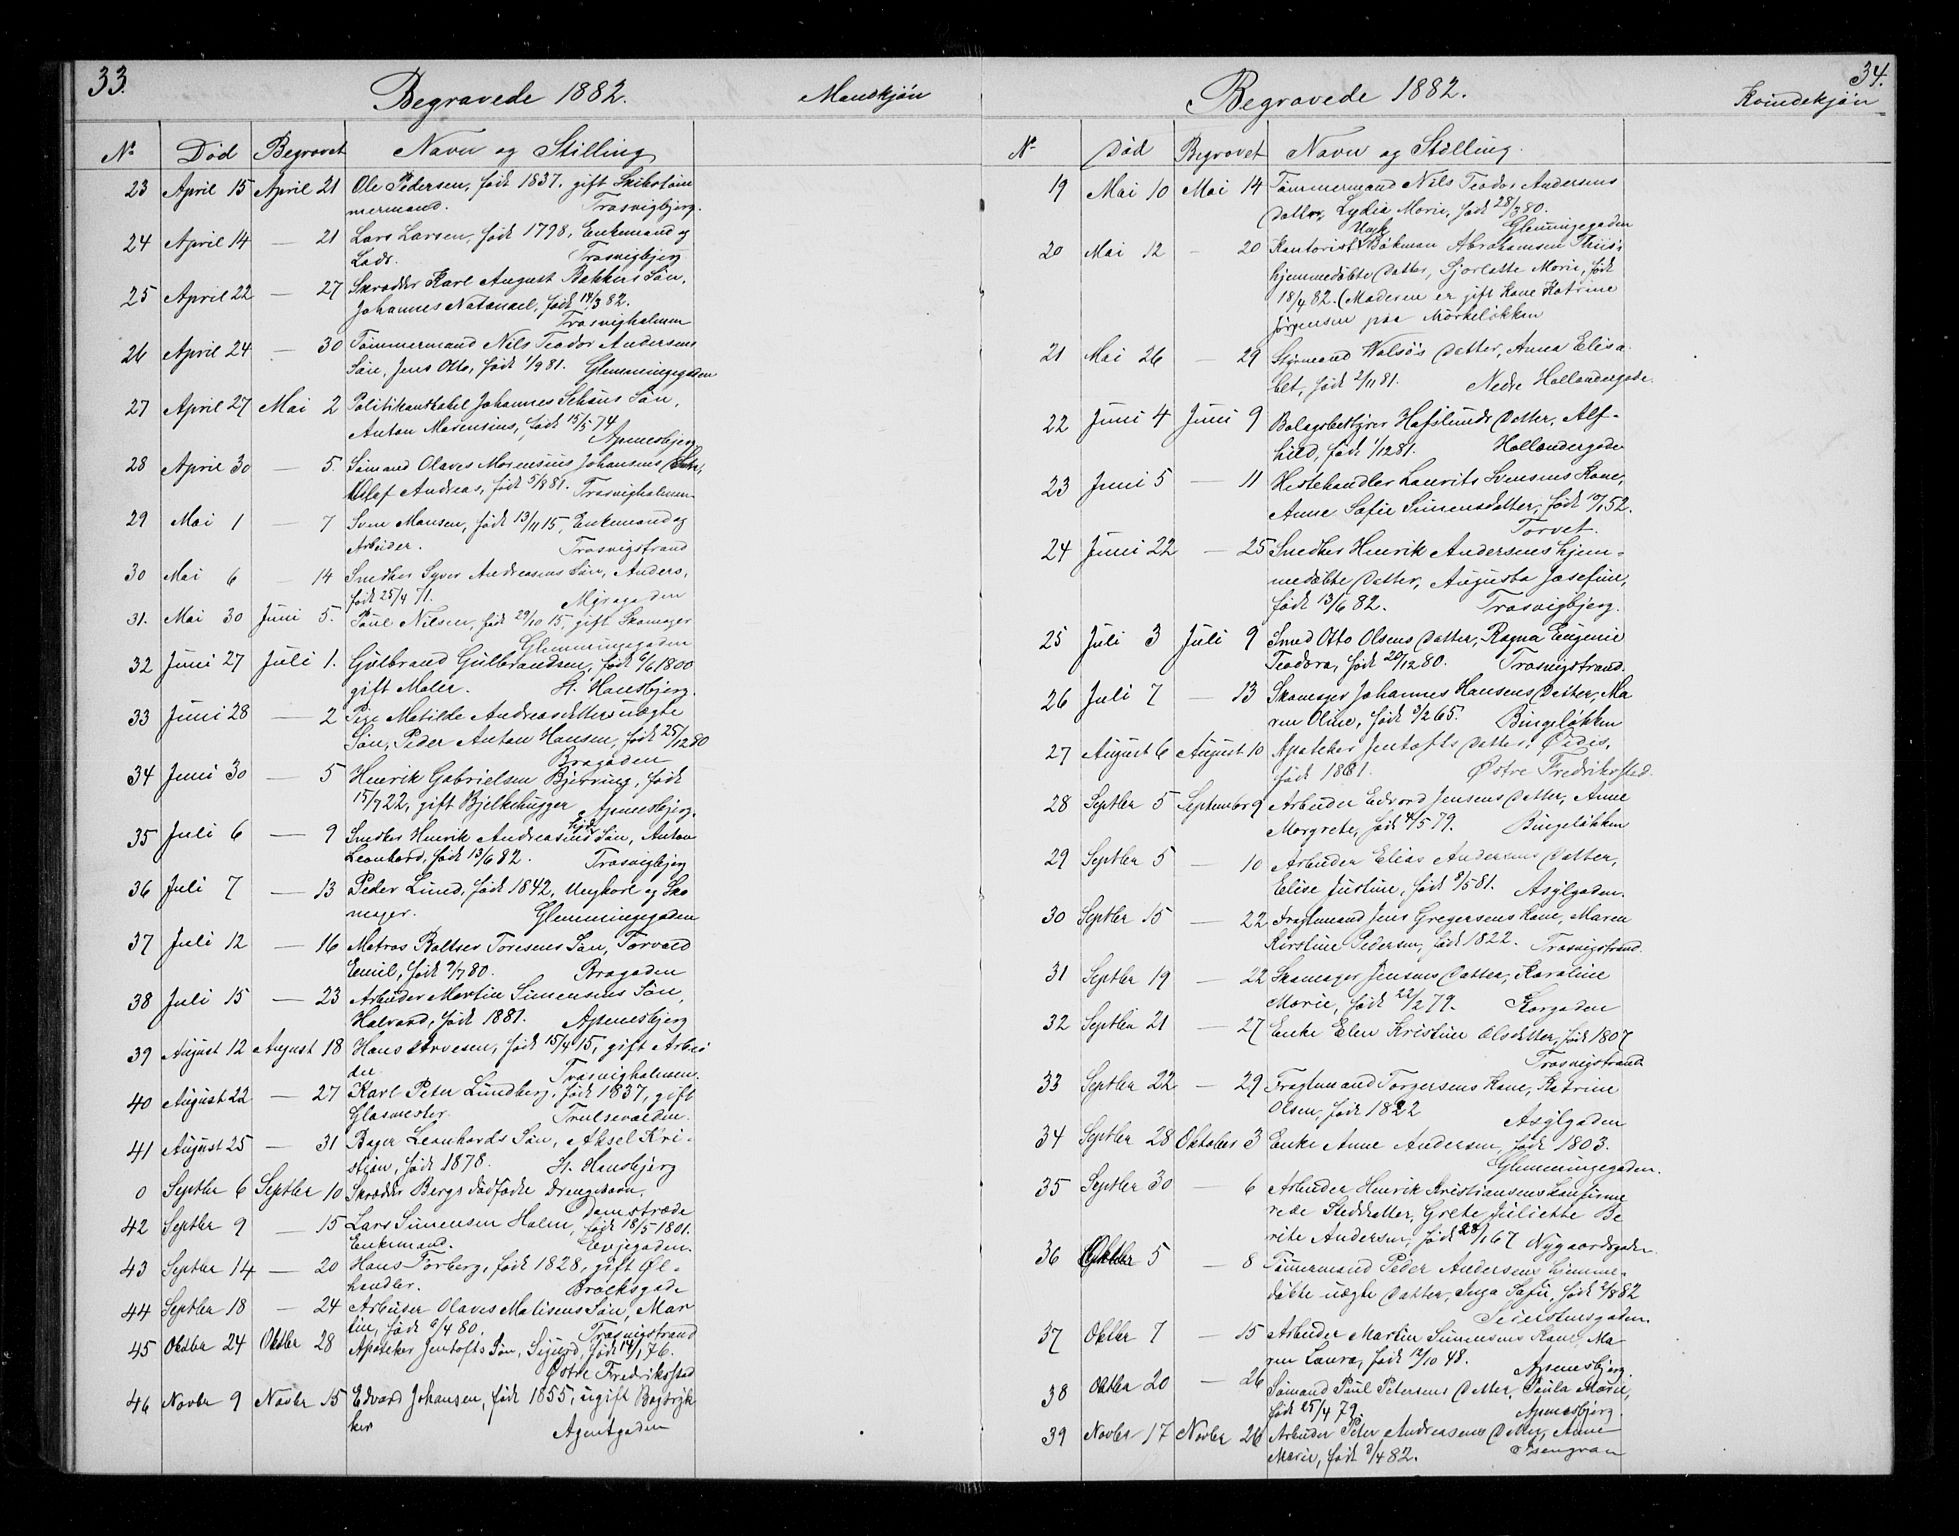 33.
Begravede 1882.
Mandkjön
No Död Begravet Navn og Stilling
23 April 15 April 21 Ole Pedersen, född 1837. gift Skibstöm
mermand. Trosvigbjerg.
24 April 14 — 21 Lars Larsen, född 1798, Enkemand og
Lods. Trosvigbjerg
25 April 22 — 27 Skrædder Karl August Bakkes Sön,
Johannes Natanael, född 14/3 82.
Trosvigholmen
26 April 24 — 30 Tömmermand Nils Teodor Andersens
Sön, Jens Otto, född 1/9 81. Glemmingegaden
27 April 27 Mai 2 Politikonstabel Johannes Sön,
Anton Marensius, född 15/5 74
Apenesbjerg
28 April 30 — 5. Sömand Olaves Morensius Johansens
Olaf Andreas, född 5/8 81. Trosvigholmen
29 Mai 1 — 7 Sven Monsen, född 13/11 15, Enkemand og
Arbeider. Trosvigstrand
30 Mai 6 — 14 Snedker Syver Andreasens Sön, Anders,
född 25/4 71. Myragaden
31. Mai 30 Juni 5. Paul Nilsen, född 29/10 15, gift Skomager
Glemmingegaden
32 Juni 27 Juli 1. Gulbrand Gulbrandsen, född 6/6 1800
gift Maler. St. Hansbjerg.
33 Juni 28 — 2 Pige Matilde Andreasdatters uægte
Sön, Peder Anton Hansen, född 25/12 80
Brogaden
34 Juni 30 — 5 Henrik Gabrielsen Bjerring, född
15/7 22, gift Bjelkehugger Apenesbjerg.
35 Juli 6 — 9 Snedker Henrik Andreasens Sön, Anton
Leonhard, född 13/6 82. Trosvigbjerg
36 Juli 7 — 13 Peder Lund, född 1842, Ungkarl og Sko
mager. Glemmingegaden
37 Juli 12 — 16 Matros Baltser Toresens Sön, Torvald
Emil, född 9/7 80. Brogaden
38 Juli 15 — 23 Arbeider Martin Simensens Sön,
Halvard, född 1881. Apenesbjerg
39 August 12 August 18 Hans Arvesen, född 15/4 15, gift Arbei
der. Trosvigholmen.
40 August 22 — 27 Karl Peter Lundberg, född 1837, gift
Glasmester.
41 August 25 — 31 Bager Leonhards Sön, Aksel Kri-
stian, född 1878. St. Hansbjerg
0 Septbr 6 Septbr 10 Skrædder Bergs dödfödte Drengebarn.
Damstræde
42 Septbr 9 — 15 Lars Simensen Holm, född 18/5 1801.
Enkemand. Evjegaden.
43 Septbr 14 — 20 Hans Torberg, född 1828, gift Öl-
handler. Brocksgade
44 Septbr 18 — 24 Arbeider Olaves Matisens Sön, Mar
tin, född 6/4 80. Trosvigstrand
45 Oktbr 24 Oktbr 28 Apoteker Jentofts Sön, Sigurd, född 14/1 76.
Östre Fredriksstad
46 Novbr 9 Novbr 15 Edvard Johansen, född 1855, ugift Bogtryk
ker Agentgaden
34.
Begravede 1882.
Kvindekjön
No Död Begravet Navn og Stilling.
19 Mai 10 Mai 14 Tömmermand Nils Teodor Andersens
Datter, Lydia Marie, född 28/3 80.
Glemmingegaden
20 Mai 12 — 20 Kontorist Bökman Abrahamsen Thiis's
hjemmedöbte Datter, Sjarlotte Marie, född
18/4 82. (Moderen er gift Kone Katrine
Jörgensen paa Mörkelökken
21 Mai 26 — 29 Styrmand Valsös Datter, Anna Elisa
bet, född 2/11 81. Nedre Hollændergade.
22 Juni 4 Juni 9 Bolagsbestyrer Hafslunds Datter, Alf-
hild, född 1/12 81. Hollændergade
23 Juni 5 — 11 Hestehandler Laurits Svensens Kone,
Anne Sofie Simensdatter, född 10/1 52.
Torvet.
24 Juni 22 — 25 Snedker Henrik Andersens hjem-
medöbte Datter, Augusta Josefine,
född 13/6 82. Trosvigbjerg.
25 Juli 3 Juli 9 Smed Otto Olsens Datter, Ragna Eugenie
Teodora, född 20/12 80. Trosvigstrand.
26 Juli 7 — 13 Skomager Johannes Hansens Datter, Ma
ren Oline, född 3/2 65. Bingelökken
27 August 6 August 10 Apoteker Jentofts Datter,
född 1881. Östre Fredriksstad.
28 Septbr 5 September 9 Arbeider Edvard Jensens Datter, Anne
Margrete, född 4/5 79. Bingelökken
29 Septbr 5 — 10 Arbeider Elias Andersens Datter,
Elise Justine, född 8/5 81. Asylgaden.
30 Septbr 15 — 22 Fragtmand Jens Gregersens Kone, Maren
Kirstine Pedersen, född 1822. Trosvigstrand.
31 Septbr 19 — 22 Skomager Jensens Datter, Karoline
Marie, född 22/2 79. Storgaden
32 Septbr 21 — 27 Enke Elen Kristine Olsdatter, född 1807
Trosvigstrand
33 Septbr 22 — 29 Fragtmand Torgersens Kone, Katrine
Olsen, född 1822 Asylgaden
34 Septbr 28 Oktober 3 Enke Anne Andersen, född 1803.
Glemmingegaden.
35 Septbr 30 — 6 Arbeider Henrik Kristiansens konfirme
rede Steddatter, Grete Juliette Be
rite Andersen, född 28/1 67 Nygaardsgaden.
36 Oktbr 5 — 8 Tömmermand Peder Andersens hjemme-
döbte uægte Datter, Inga Sofie, född 2/8 82
37 Oktbr 7 — 15 Arbeider Martin Simensens Kone, Ma
ren Laura, född 12/10 48. Apenesbjerg.
38 Oktbr 20 — 26 Sömand Paul Petersens Datter, Paula Marie,
född 25/4 79. Apenesbjerg.
39 Novbr 17 Novbr 26 Arbeider Peter Andreasens Datter, Anne
Marie, född 3/4 82.